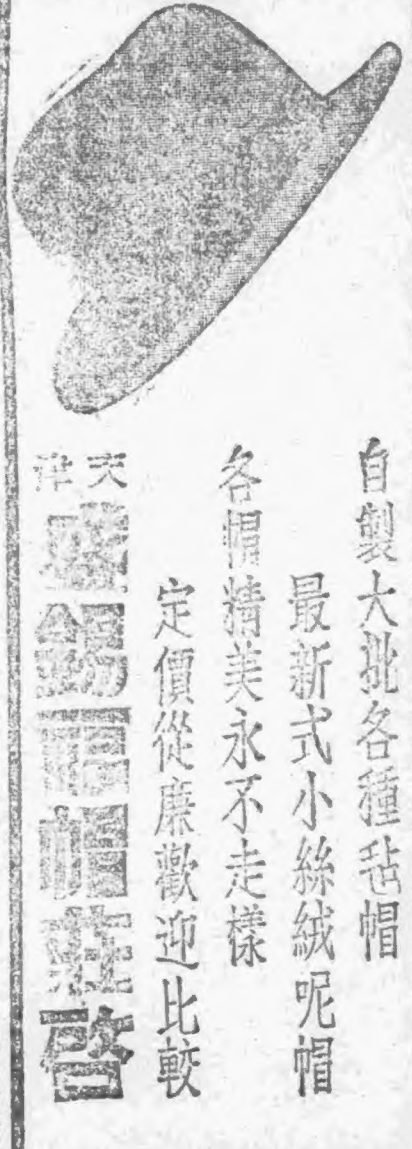 自製大批各種毡帽
最新式小絲絨呢帽
各帽精美永不走樣
定價從廉歡迎比較
天津
盛錫福帽莊啓